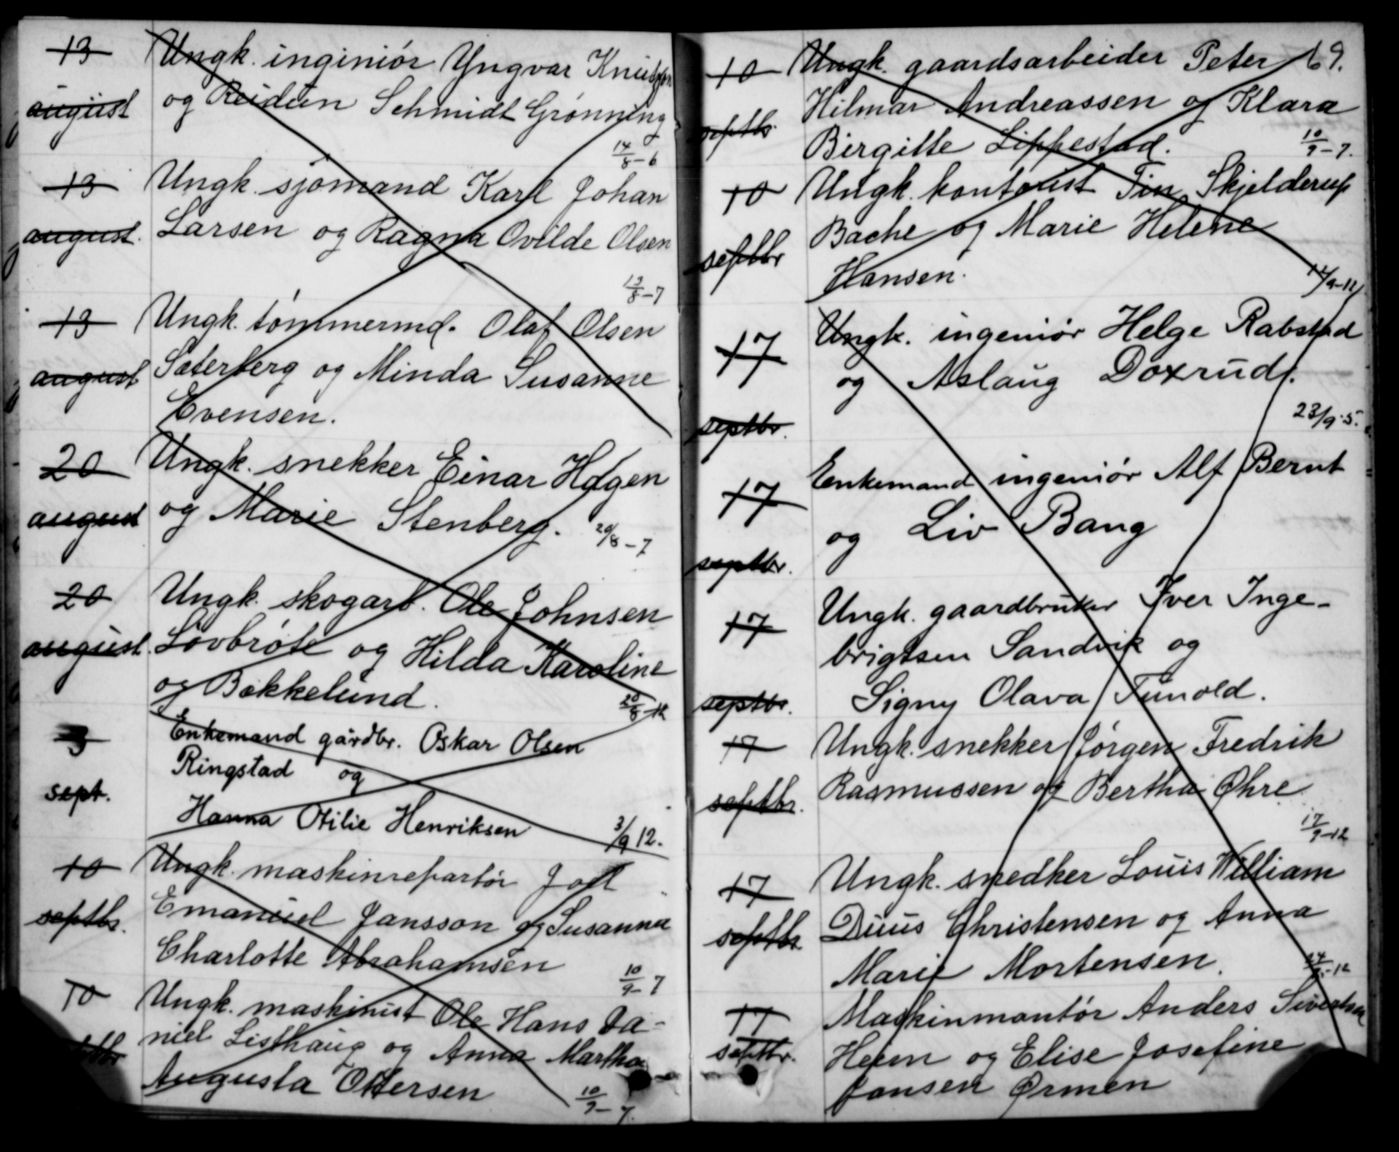 13 Ungk. inginiør Yngvar Knudsen
august og Reidun Schmidt Grønning
14/8-6
13 Ungk. sjømand Karl Johan
august. Larsen og Ragna Ovilde Olsen
13/8-7
13 Ungk. tömmermd. Olaf Olsen
august Sæterberg og Minda Susanne
Evensen.
20 Ungk. snekker Einar Hagen
august og Marie Stenberg. 20/8-7
20 Ungk. skogarb. Ole Johnsen
august. Løvbrøte og Hilda Karoline
og Bakkelund. 20/8-12
3 Enkemand gårdbr. Oskar Olsen
Ringstad og
sept. Hanna Otilie Henriksen 3/9 12.
10 Ungk. maskinrepartør Joel
septbr. Emanuel Jansson og Susanna
Charlotte Abrahamsen 10/9-7
10 Ungk. maskinist Ole Hans Da-
niel Listhaug og Anna Martha
Augusta Ottersen 10/9-7.
69.
10 Ungk. gaardsarbeider Peter
septbr. Hilmar Andreassen og Klara
Birgitte Lippestad. 10/9-7.
10 Ungk. kontorist Finn Skjelderup
septbr Bache og Marie Helene
Hansen. 14/9-12
17 Ungk. ingeniør Helge Rabstad
og Aslaug Doxrud.
septbr. 23/9-5.
17 Enkemand ingeniør Alf Bernt
septbr. og Liv Bang
17 Ungk. gaardbruker Iver Inge-
brigtsen Sandvik og
septbr. Signy Olava Tunold.
17 Ungk. snekker Jørgen Fredrik
septbr. Rasmussen og Bertha Øhre
17/9-12
17 Ungk. snedker Louis William
septbr Duus Christensen og Anna
Marie Mortensen.
17 Maskinmontør Anders Sivertsen
septbr. Heen og Elise Josefine
Jansen Ørmen